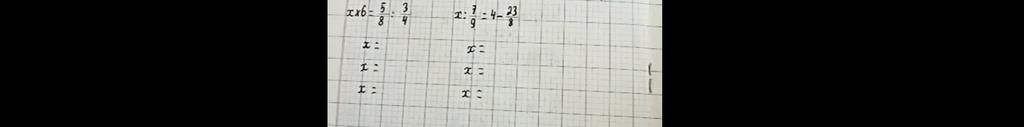 x×6 = 5/8 : 3/4    x : 7/9 = 4 - 23/8
x =    x =
x =    x =
x =    x =